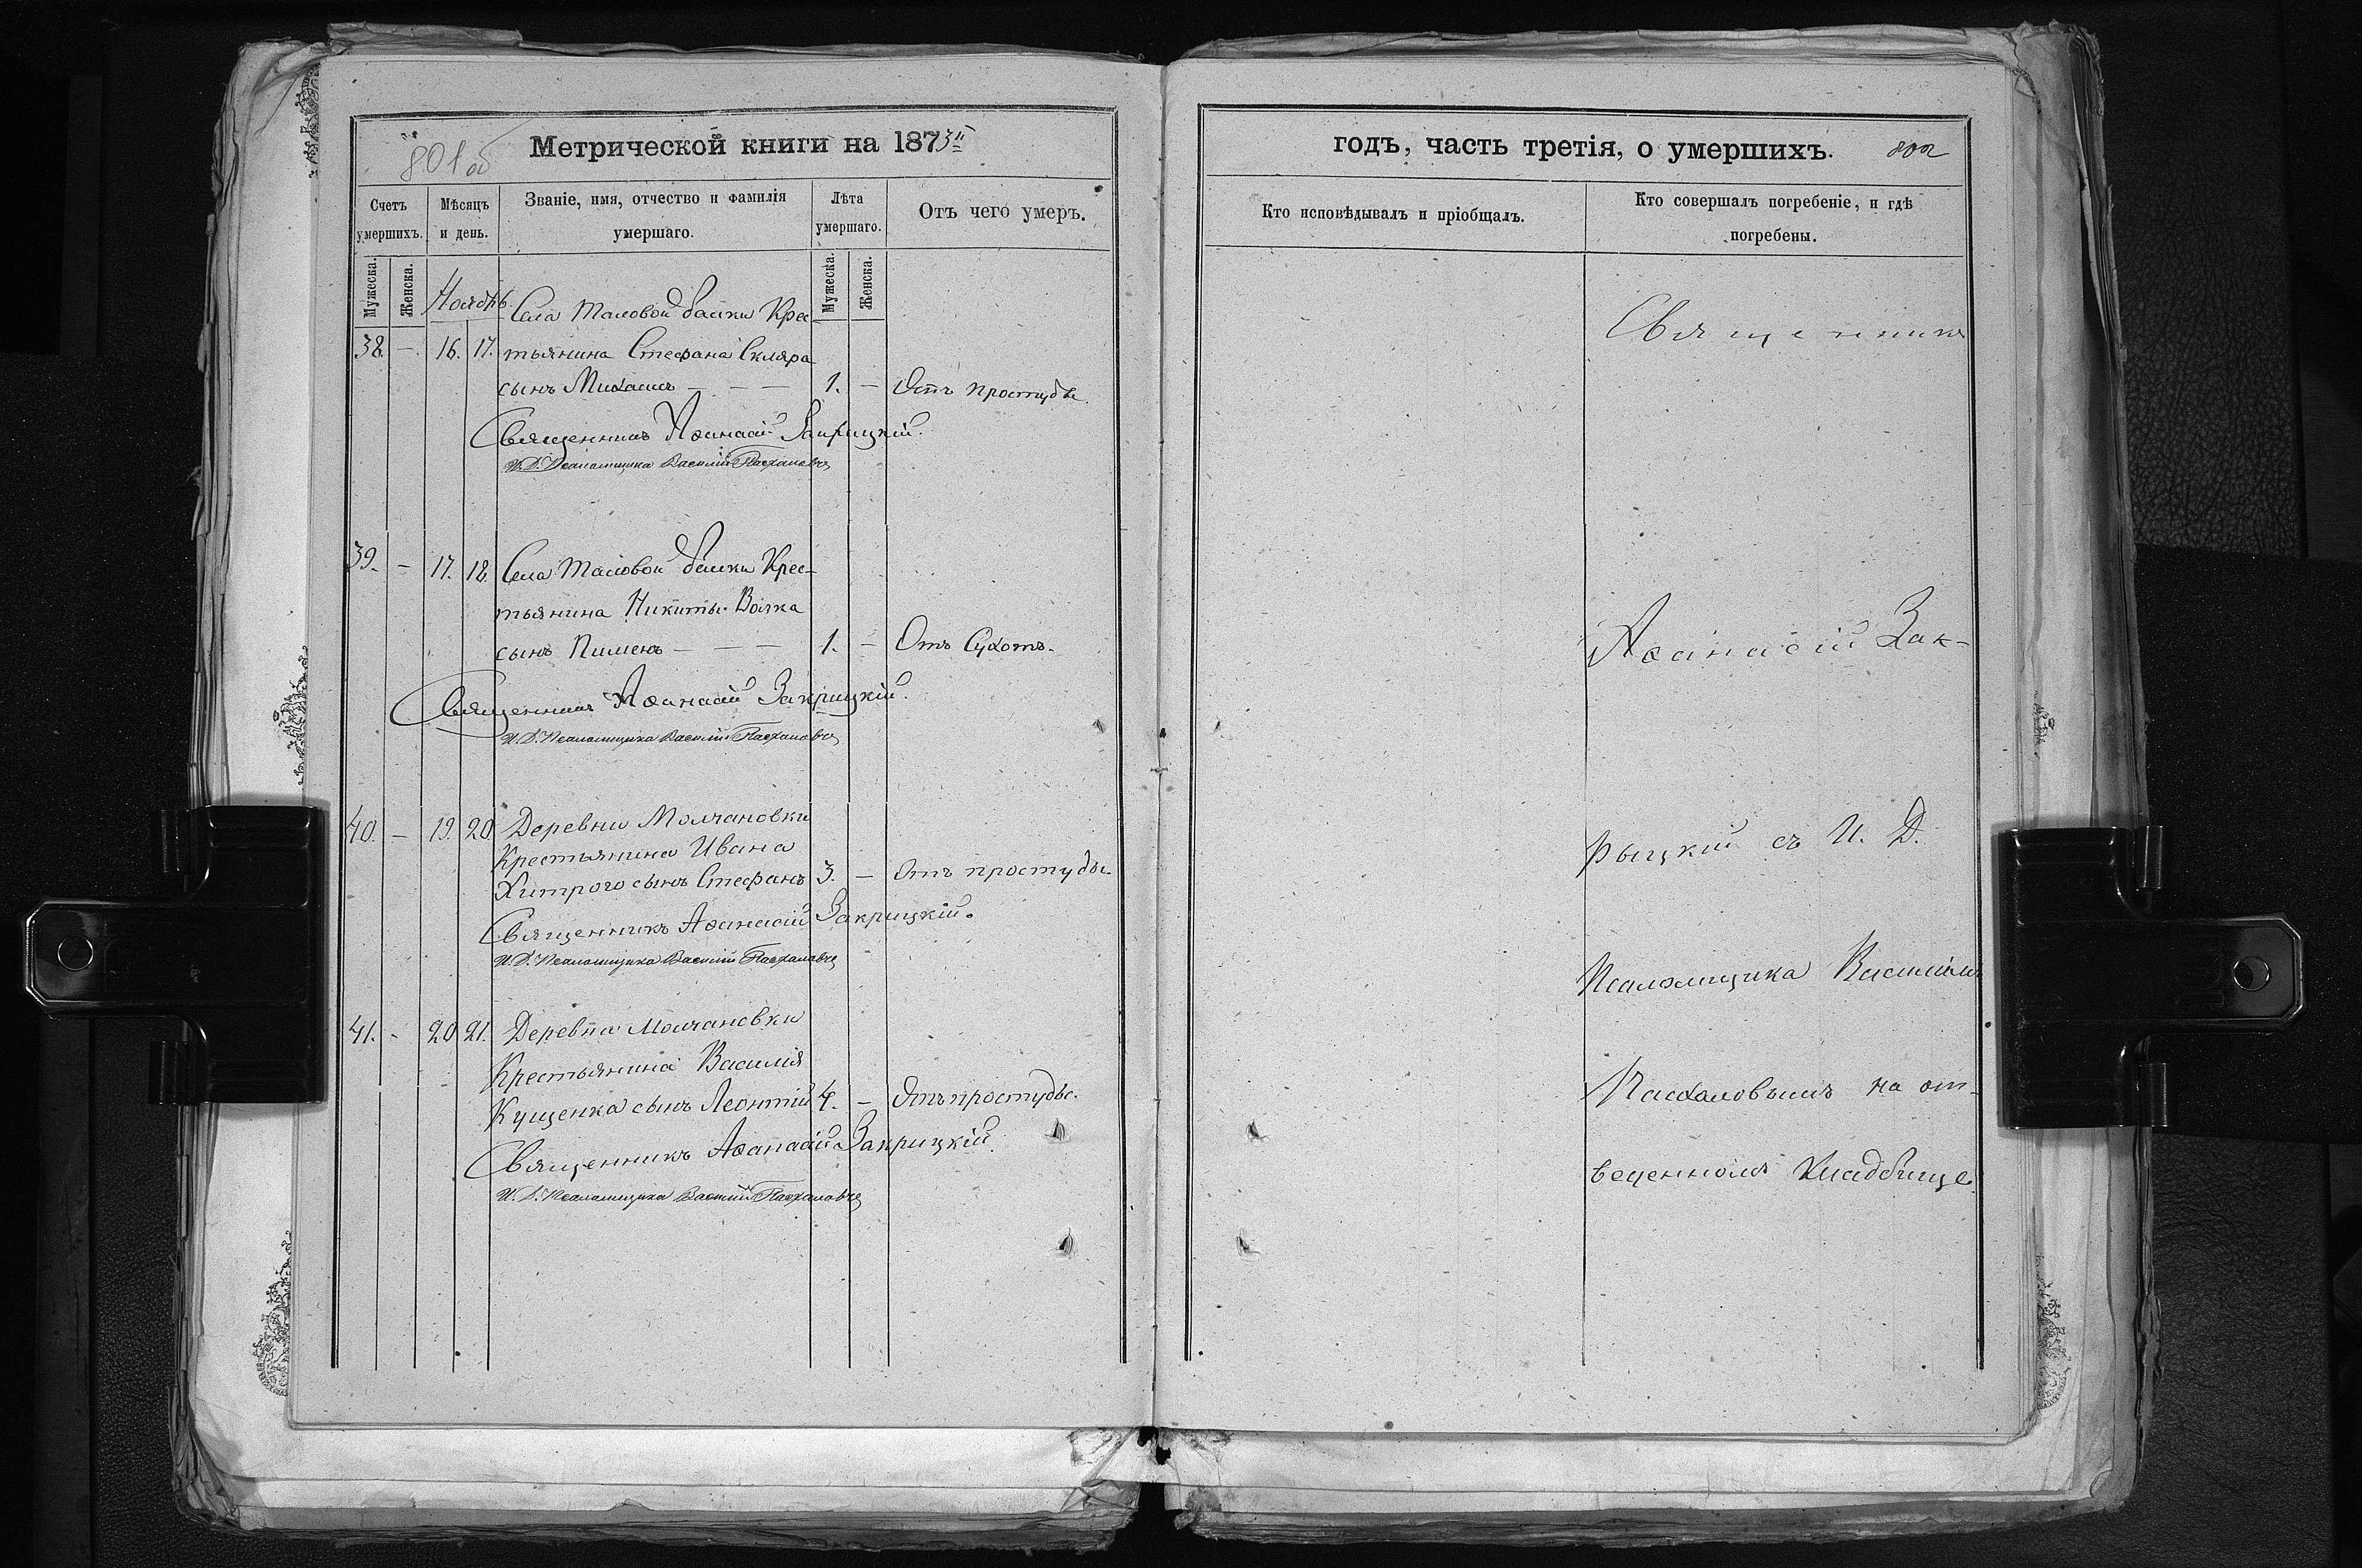 801 об
Метрической книги на 1873й
Счетъ умершихъ.
Мѣсяцъ и день.
Званіе, имя, отчество и фамилія умершаго.
Лѣта умершаго.
Отъ чего умеръ.
Мужеска.
Женска.
Мужеска.
Женска.
Ноябрь
Села Таловой балки Крес-
38. — 16. 17. тьянина Стефана Скляра
сынъ Михаилъ — — — 1. — Отъ простуды.
Священникъ Аѳанасій Закрицкій.
И. Д. Псаломщика Василій
39. — 17. 18. Села Таловой балки Крес-
тьянина Никиты Вовка
сынъ Пименъ — — — 1. — Отъ Сухотъ.
Священникъ Аѳанасій Закрицкій.
И. Д. Псаломщика Василій
40. — 19. 20. Деревни Молчановки
Крестьянина Ивана
Хитрого сынъ Стефанъ 3. — Отъ простуды.
Священникъ Аѳанасій Закрицкій.
И. Д. Псаломщика Василій
41. — 20. 21. Деревни Молчановки
Крестьянина Василія
Кущенка сынъ Леонтій 4. — Отъ простуды.
Священникъ Аѳанасій Закрицкій.
И. Д. Псаломщика Василій
годъ, часть третія, о умершихъ.
802
Кто исповѣдывалъ и пріобщалъ.
Кто совершалъ погребеніе, и гдѣ погребены.
Священникъ
Аѳанасій Зак-
рыцкій съ И. Д.
Псаломщика Василіемъ
Пасхаловымъ на от-
веденномъ Кладбище.